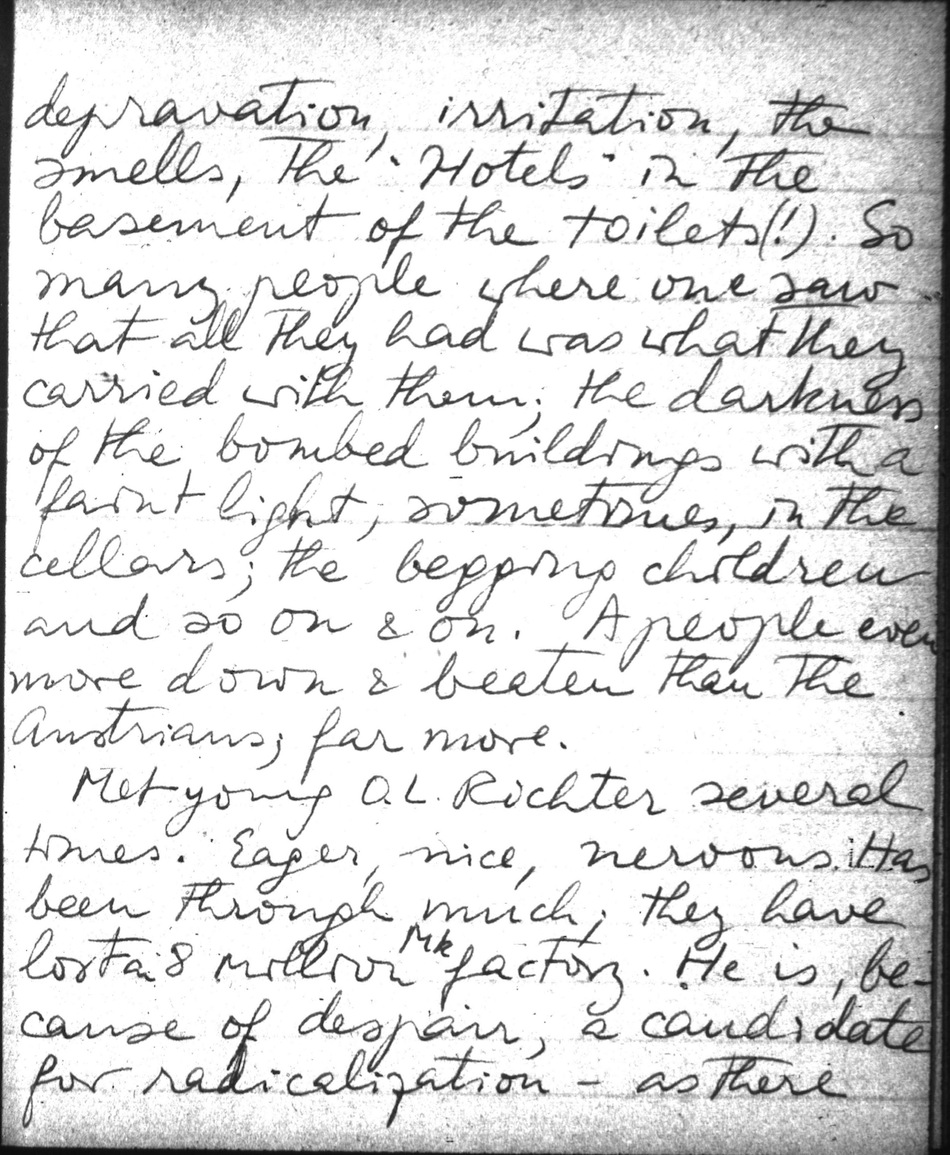 depravation, irritation, the
smells, the "Hotels" in the
basement of the toilets(!). So
many people where one saw
that all they had was what they
carried with them; the darkness
of the bombed buildings with a
faint light, sometimes, in the
cellars; the begging children
and so on & on. A people even
more down & beaten than the
Austrians; far more.
Met young O.L. Richter several
times. Eager, nice, nervous. Has
been through much; they have
lost a 8 million Mk factory. He is, be-
cause of despair, a candidate
for radicalization – as there